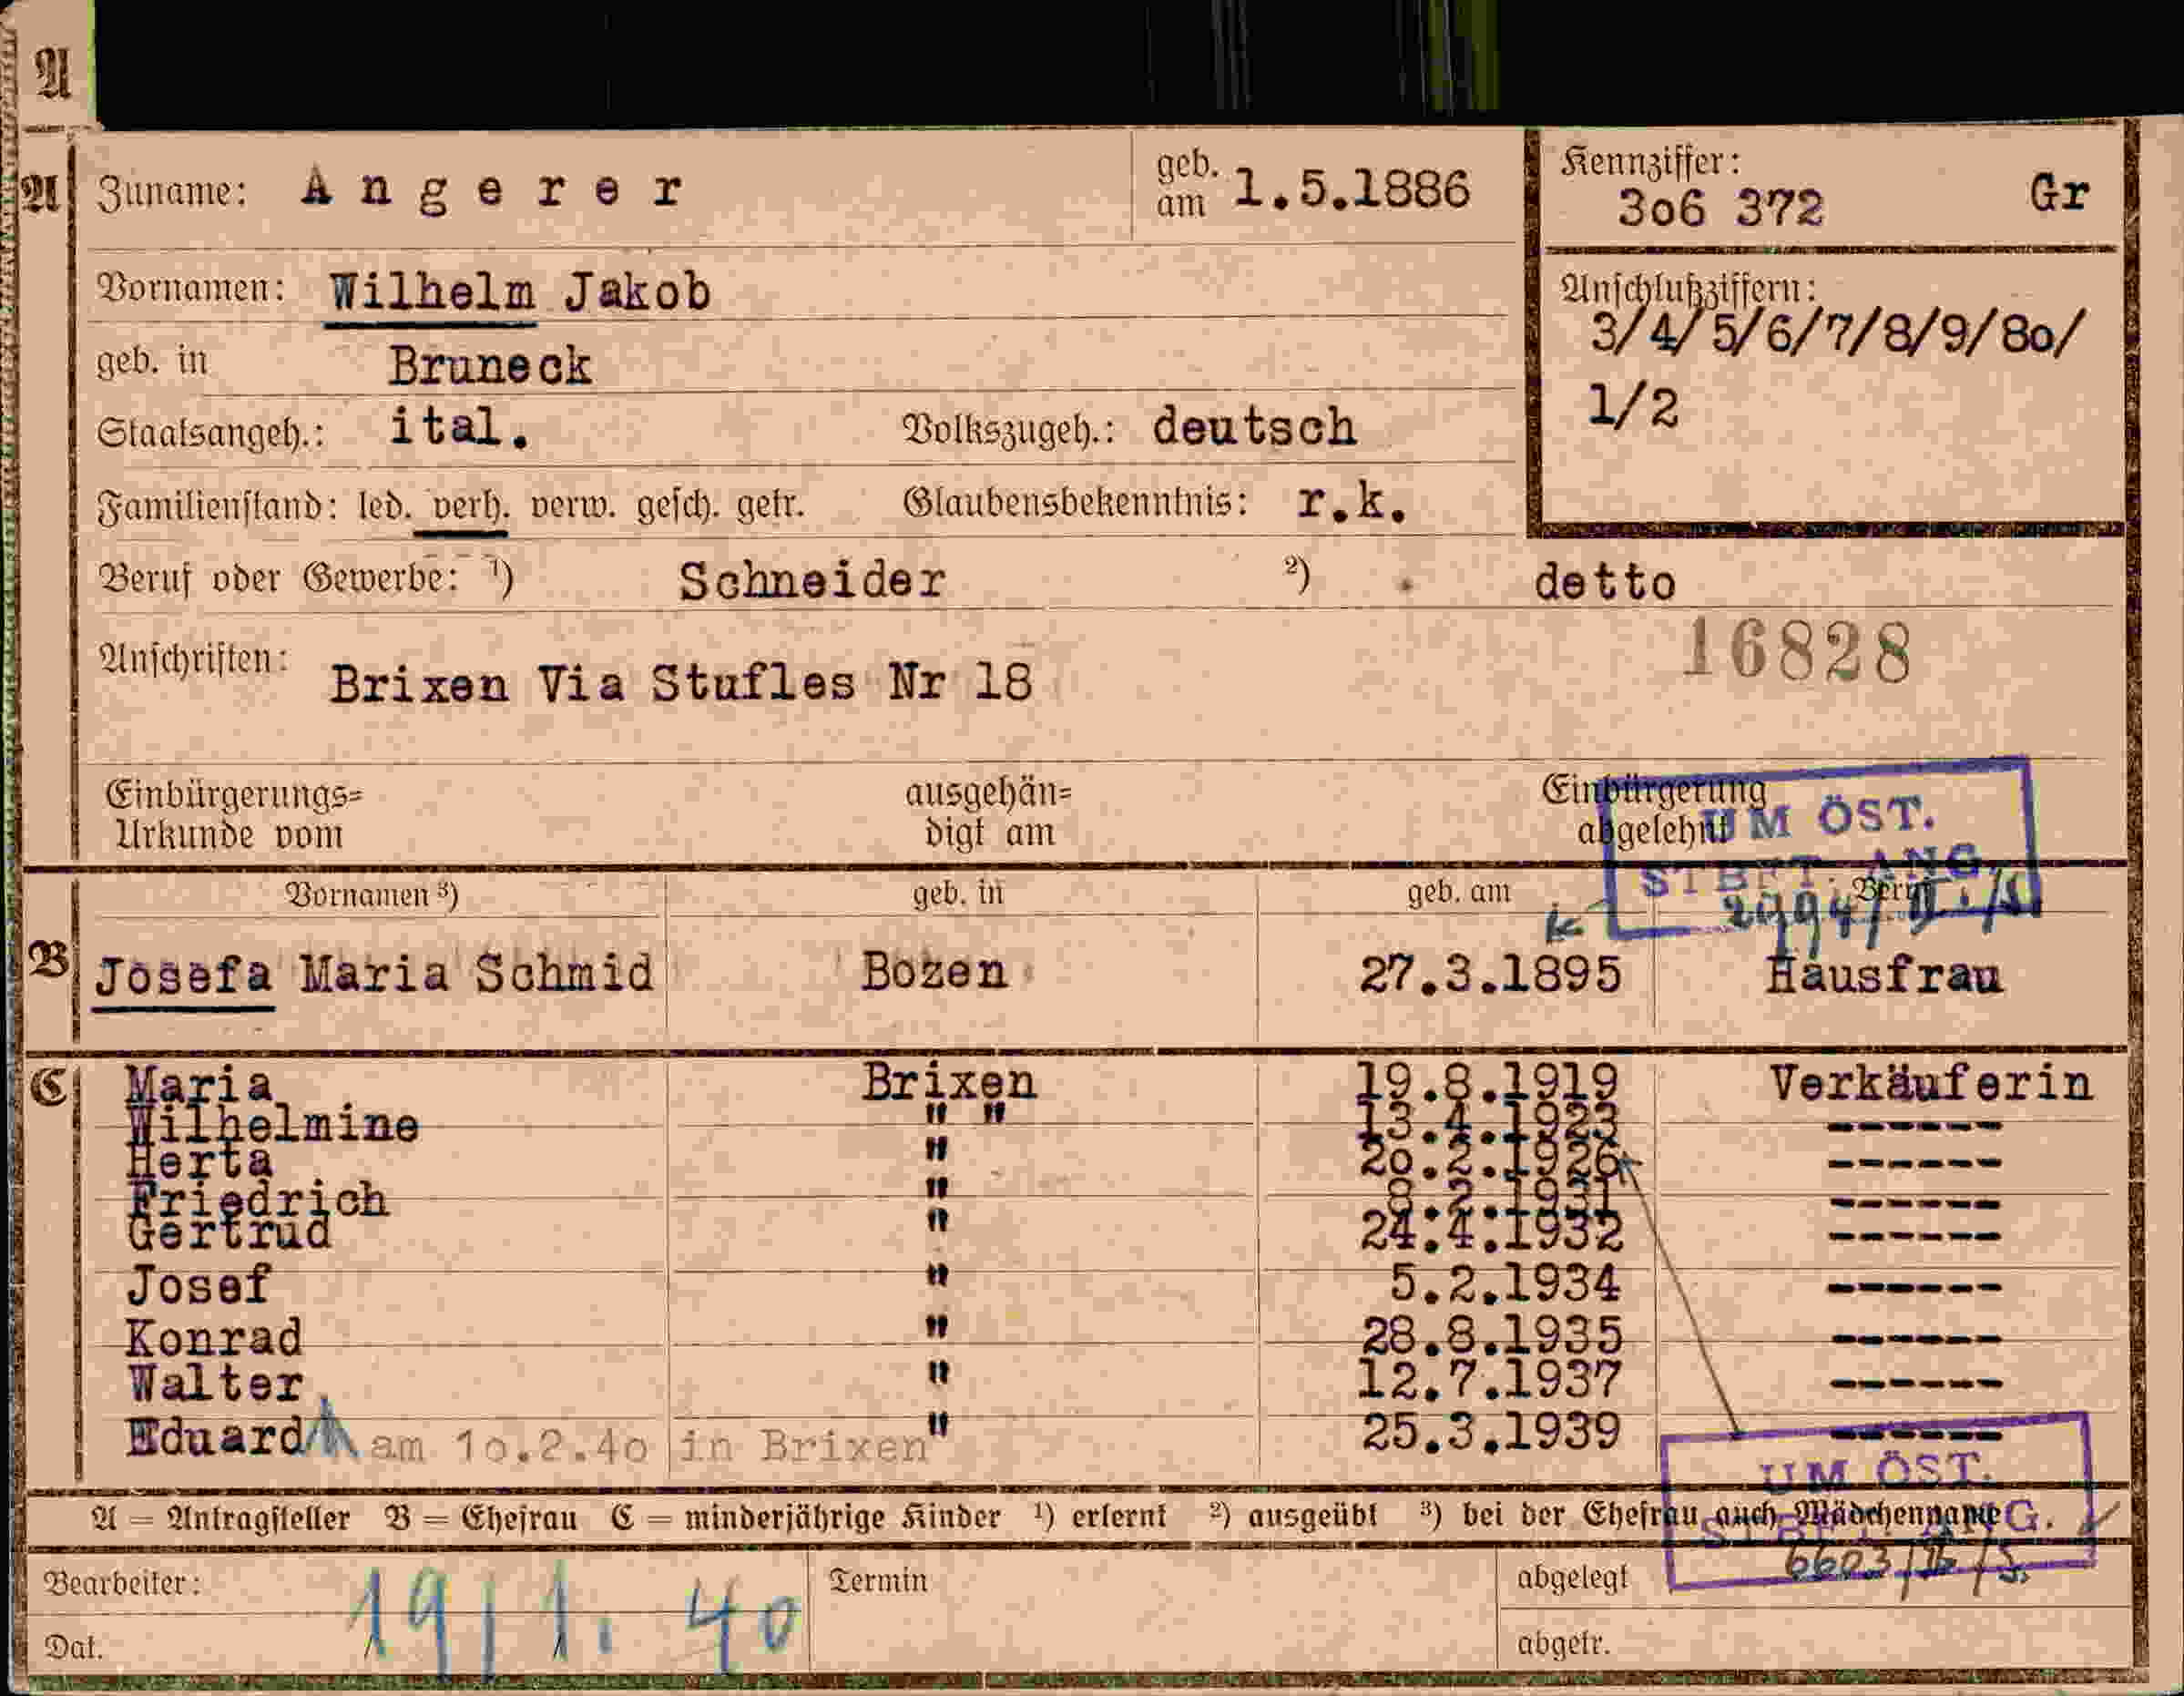 A
A Zuname: Angerer geb. am 1.5.1886 Kennziffer: 306 372 Gr
Vornamen: Wilhelm Jakob Anschlußziffern:
3/4/5/6/7/8/9/80/
1/2
geb. in Bruneck
Staatsangeh.: ital. Volkszugeh.: deutsch
Familienstand: led. verh. verw. gesch. getr. Glaubensbekenntnis: r.k.
Beruf oder Gewerbe: ¹) Schneider ²) detto
16828
Anschriften: Brixen Via Stufles Nr 18
Einbürgerungs= ausgehän= Einbürgerung
Urkunde vom digt am abgelehnt
UM ÖST.
STBFT. ANG.
Vornamen ³) geb. in geb. am Beruf
B Josefa Maria Schmid Bozen 27.3.1895 Hausfrau
C Maria Brixen 19.8.1919 Verkäuferin
Wilhelmine " " 13.4.1923 ------
Herta " 20.2.1926 ------
Friedrich " 8.2.1931 ------
Gertrud " 24.4.1932 ------
Josef " 5.2.1934 ------
Konrad " 28.8.1935 ------
Walter " 12.7.1937 ------
Eduard am 10.2.40 in Brixen " 25.3.1939 ------
UM ÖST.
A = Antragsteller B = Ehefrau C = minderjährige Kinder ¹) erlernt ²) ausgeübt ³) bei der Ehefrau auch Mädchenname
Bearbeiter: Termin abgelegt
19/1. 40
Dat. abgetr.